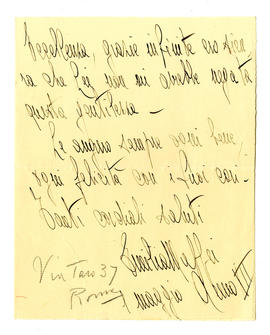 Eccellenza, grazie infinite ero sicu
ra che Lei non mi avrebbe negata
questa gentilezza -
Le auguro sempre ogni bene,
ogni felicità con i suoi cari -
Tanti cordiali saluti
Via Taro 37
Roma
maggio Anno III